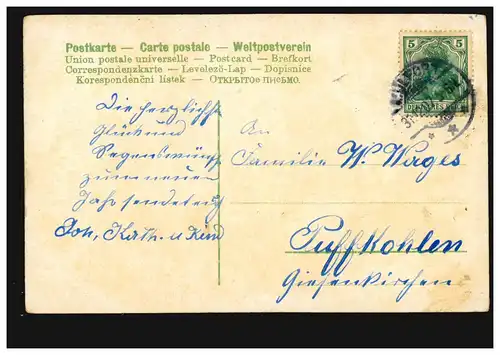 Postkarte — Carte postale — Weltpostverein
Union postale universelle — Postcard — Brefkort
Correspondenzkarte — Levelező-Lap — Dopisnice
Korespondenční listek — ОТКРЫТОЕ ПИСЬМО.
5 5
DEUTSCHES REICH
Die herzlichst
Glück und
Segenswünsche
zum neuen
Jahr sendet euch
Joh, Kath. u Kind
An
Familie W. Wages
Puffkohlen
Giesenkirchen